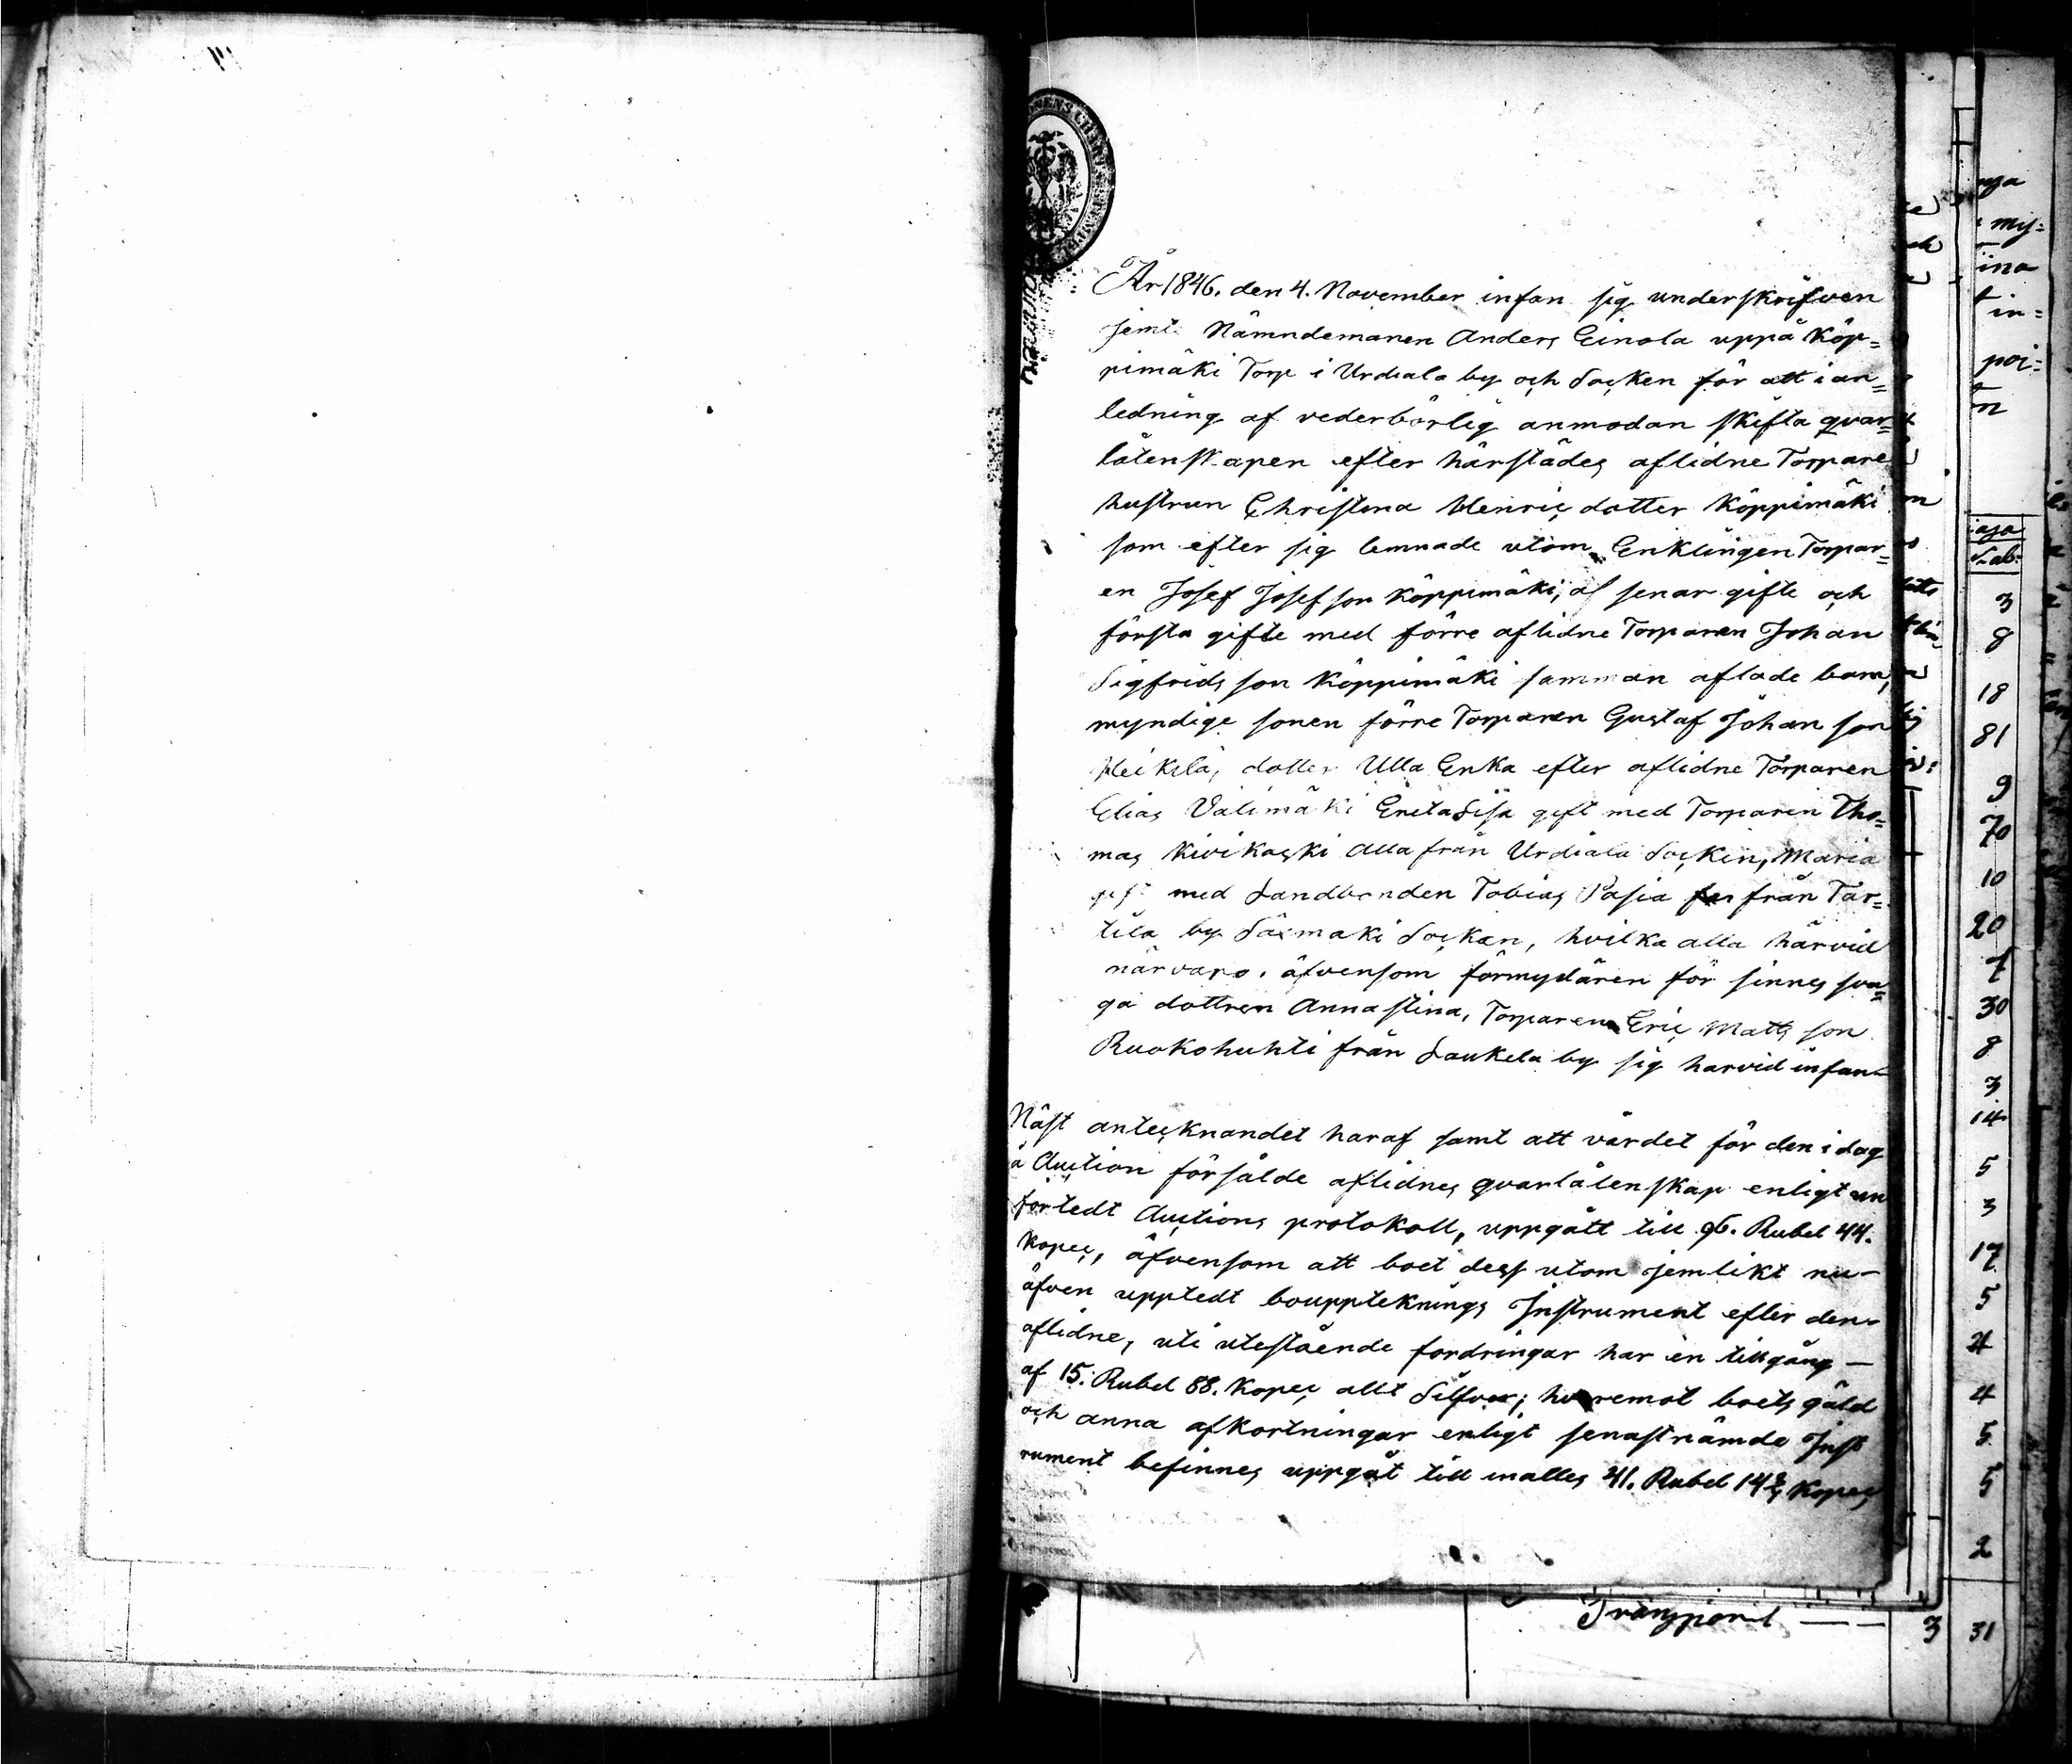 År 1846. den 4. November infan sig underskrifven
jemt Nämndemanen Anders Einola uppå Köp=
pimäki Torp i Urdiala by och Socken för att i an=
ledning af vederbörlig anmodan skifta qvar=
låtenskapen efter härstädes aflidne Torpare
hustrun Christina Henrics dotter Köppimäki
som efter sig lemnade utom Enklingen Torpar=
en Josef Josefson Köppimäki, af senar gifte och
första gifte med förre aflidne Torparen Johan
Sigfrids son Köppimäki samman aflade barn,
myndige sonen förre Torparen Gustaf Johan son
Heikilä, dotter Ulla Enka efter aflidne Torparen
Elias Välimäki Greta Lisa gift med Torparen Tho=
mas Kivikoski alla från Urdiala Socken, Maria
gift med Landbonden Tobias Pasia från Tar=
tila by Säxmäki Socken, hvilka alla härvid
närvaro, äfvensom förmydären för sinnes sva=
ga dottren Annastina, Torparen Eric Matts son
Ruokohuhti från Laukela by sig harvid infan
Näst antecknandet haraf samt att värdet för den i dag
å Auction försålde aflidnes qvarlåtenskap enligt un
förtedt Auctions protokoll, uppgått till 96. Rubel 44.
Kopec, äfvensom att boet dess utom jemlikt nu-
äfven upptedt bouppteknings Instrument efter den
aflidne, uti utestående fordringar har en tillgång —
af 15. Rubel 88. Kopec allt Silfver; hvaremot boets gäld
och anna afkortningar enligt senastnämde Inst
rument befinnes uppgåt till inalles 41. Rubel 14 2/7 Kopec
Transport — — 3 31
my=
ina
t in=
poi=
n
3
8
18
81
9
70
10
20
7
30
8
3
14
5
3
17
5
4
4
5
5
2